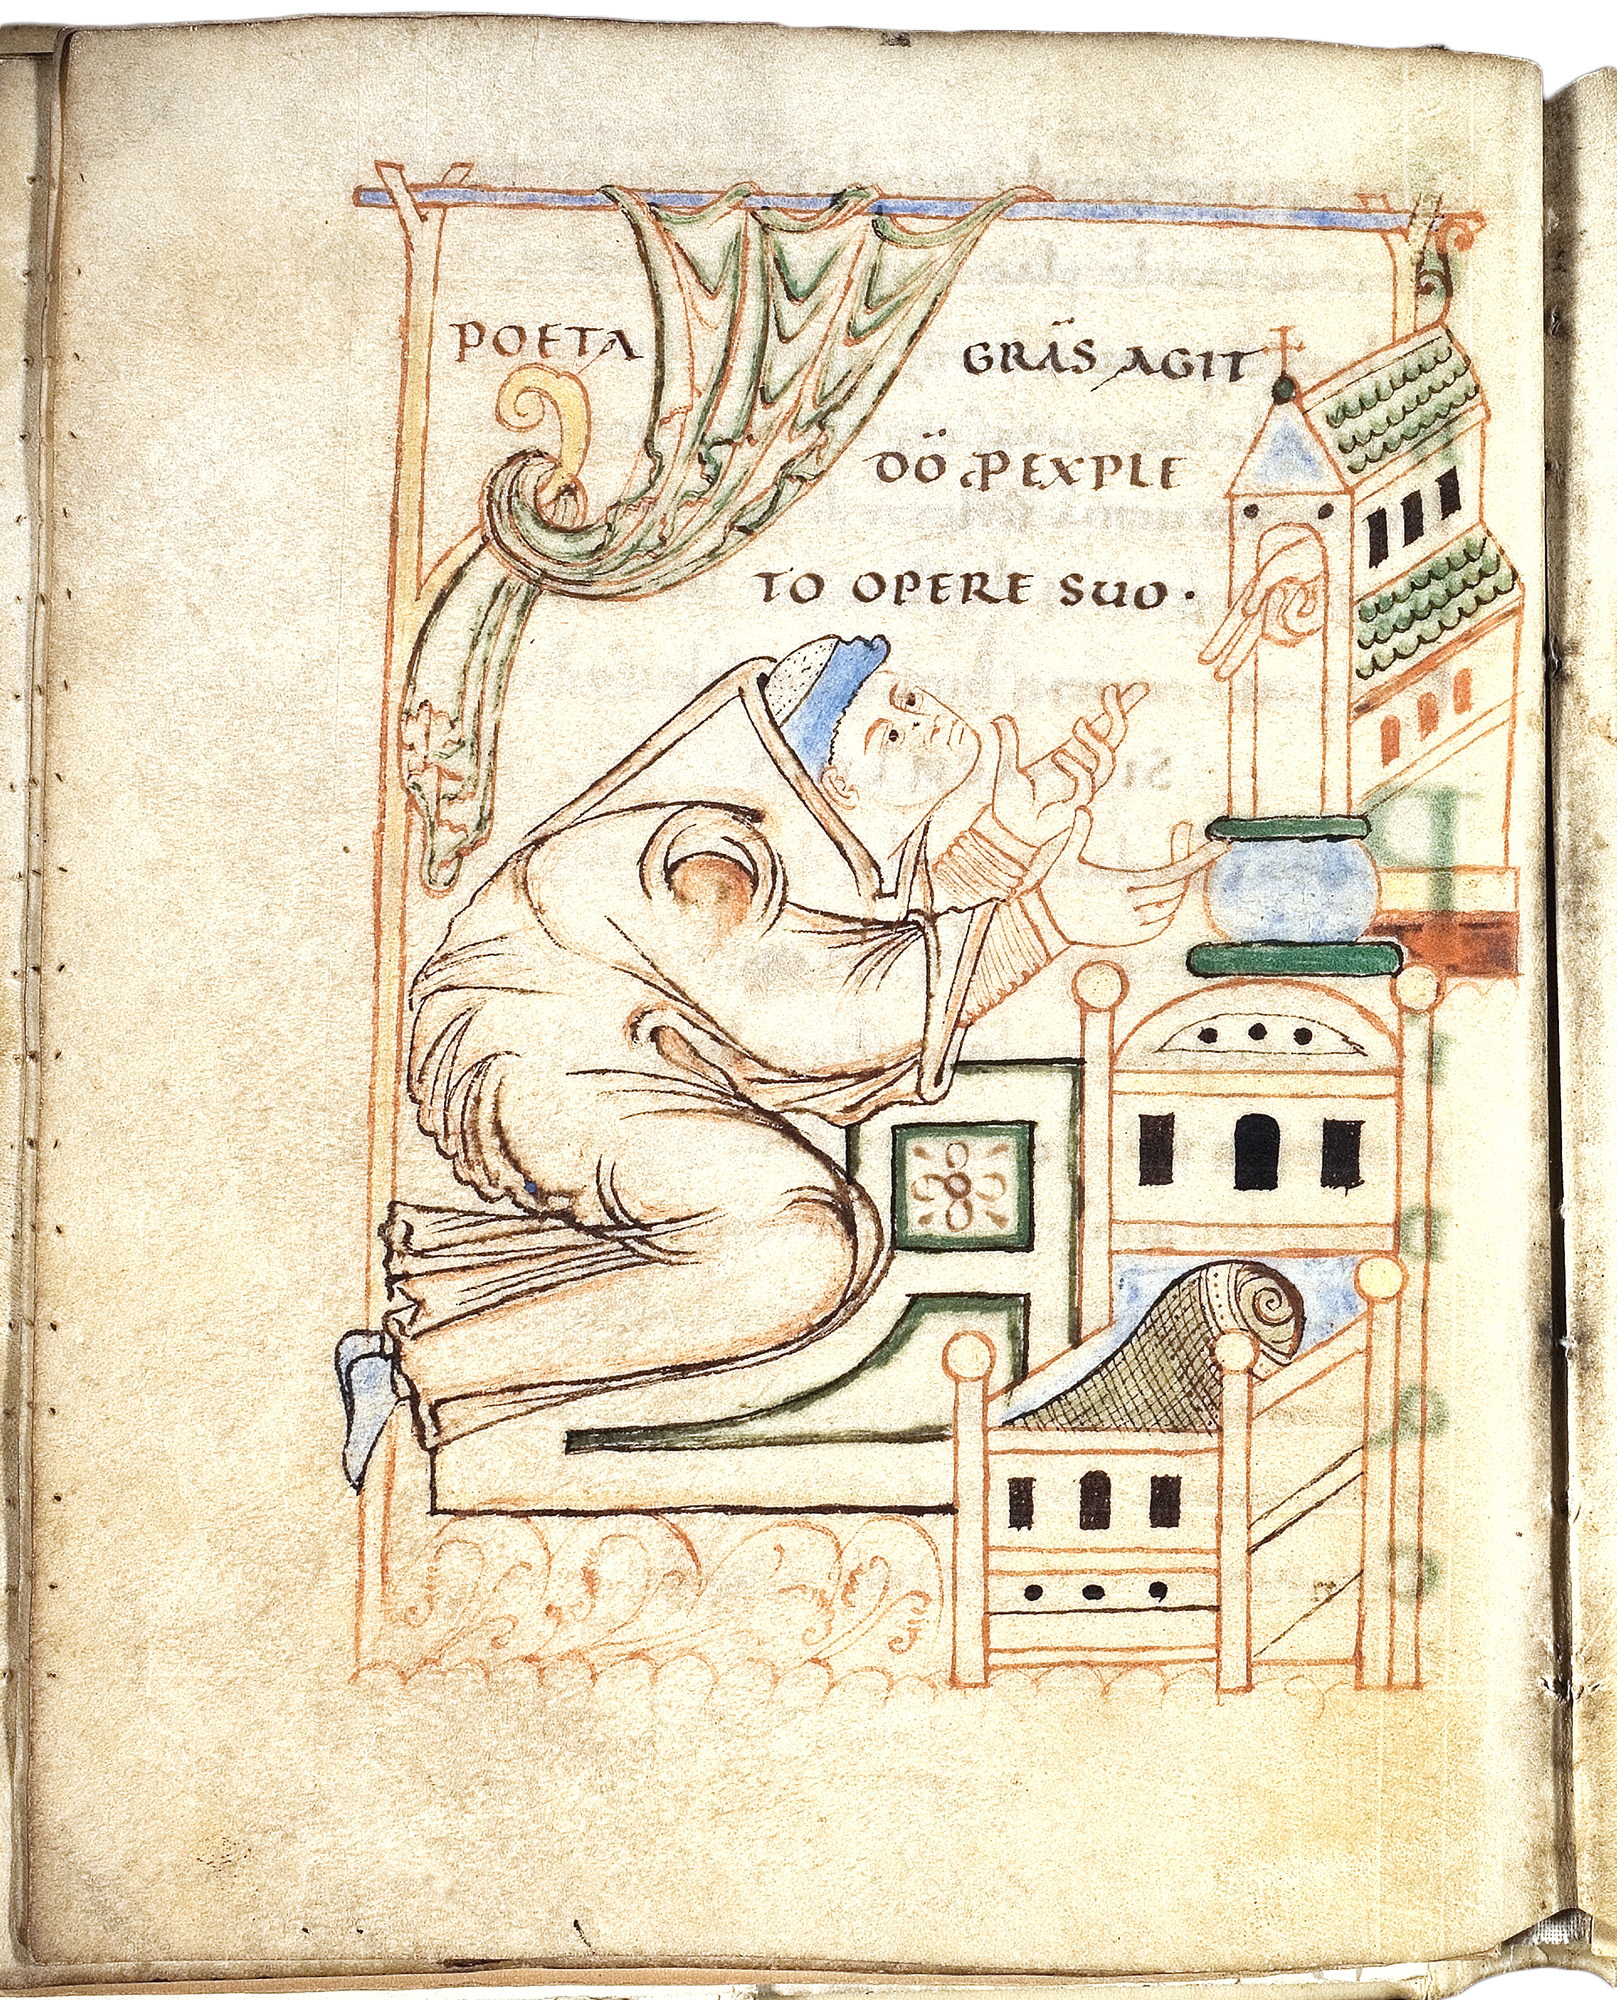 POETA GRAS̈ AGIT
DÖ P EXPLE
TO OPERE SUO·